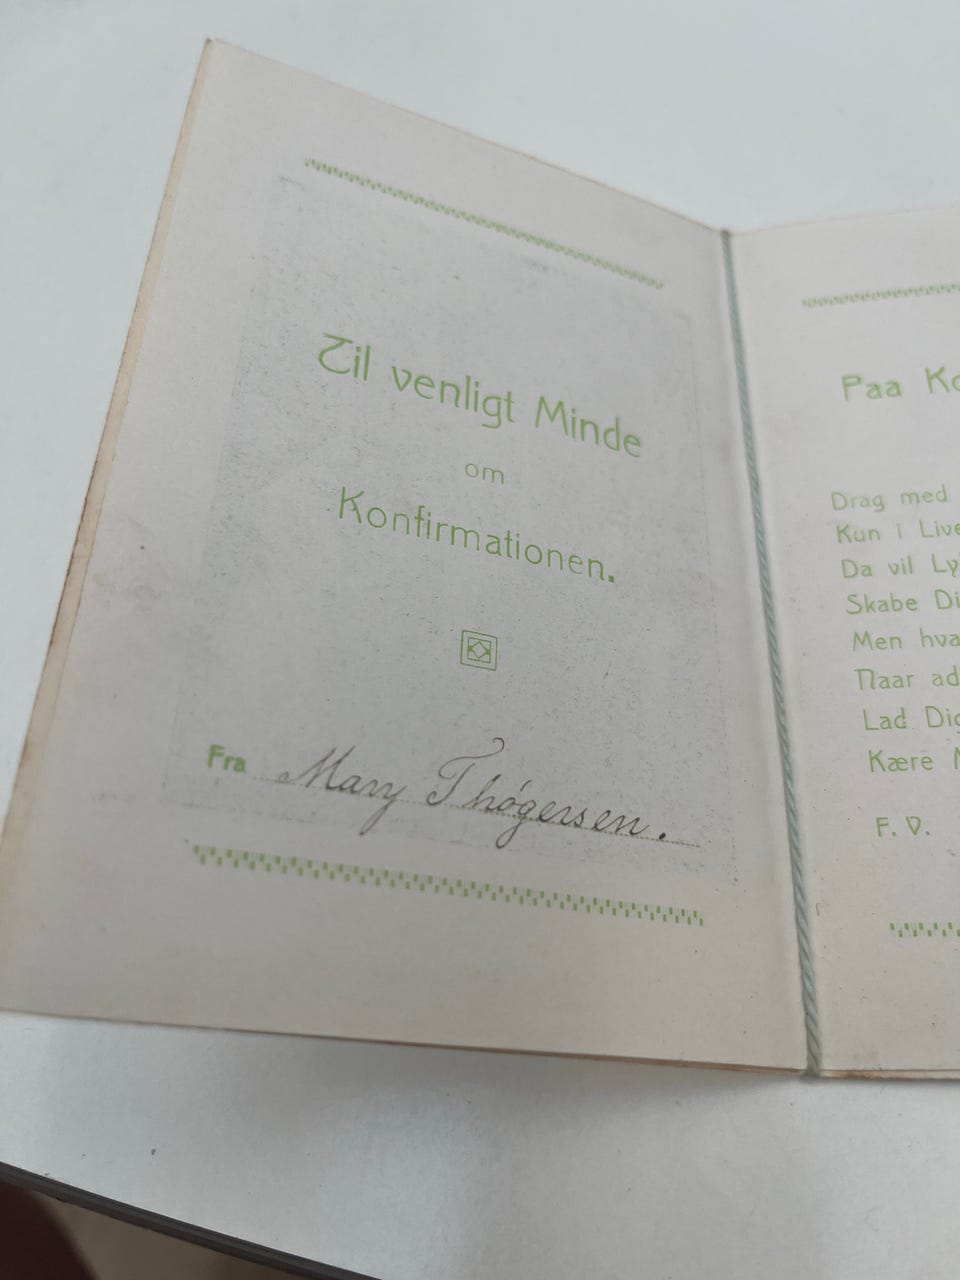 Til venligt Minde
om
Konfirmationen.
Fra Mary Thøgersen.
Paa
Drag med
Kun i
Da vil
Skabe
Men
Naar
Lad
Kære
F. V.